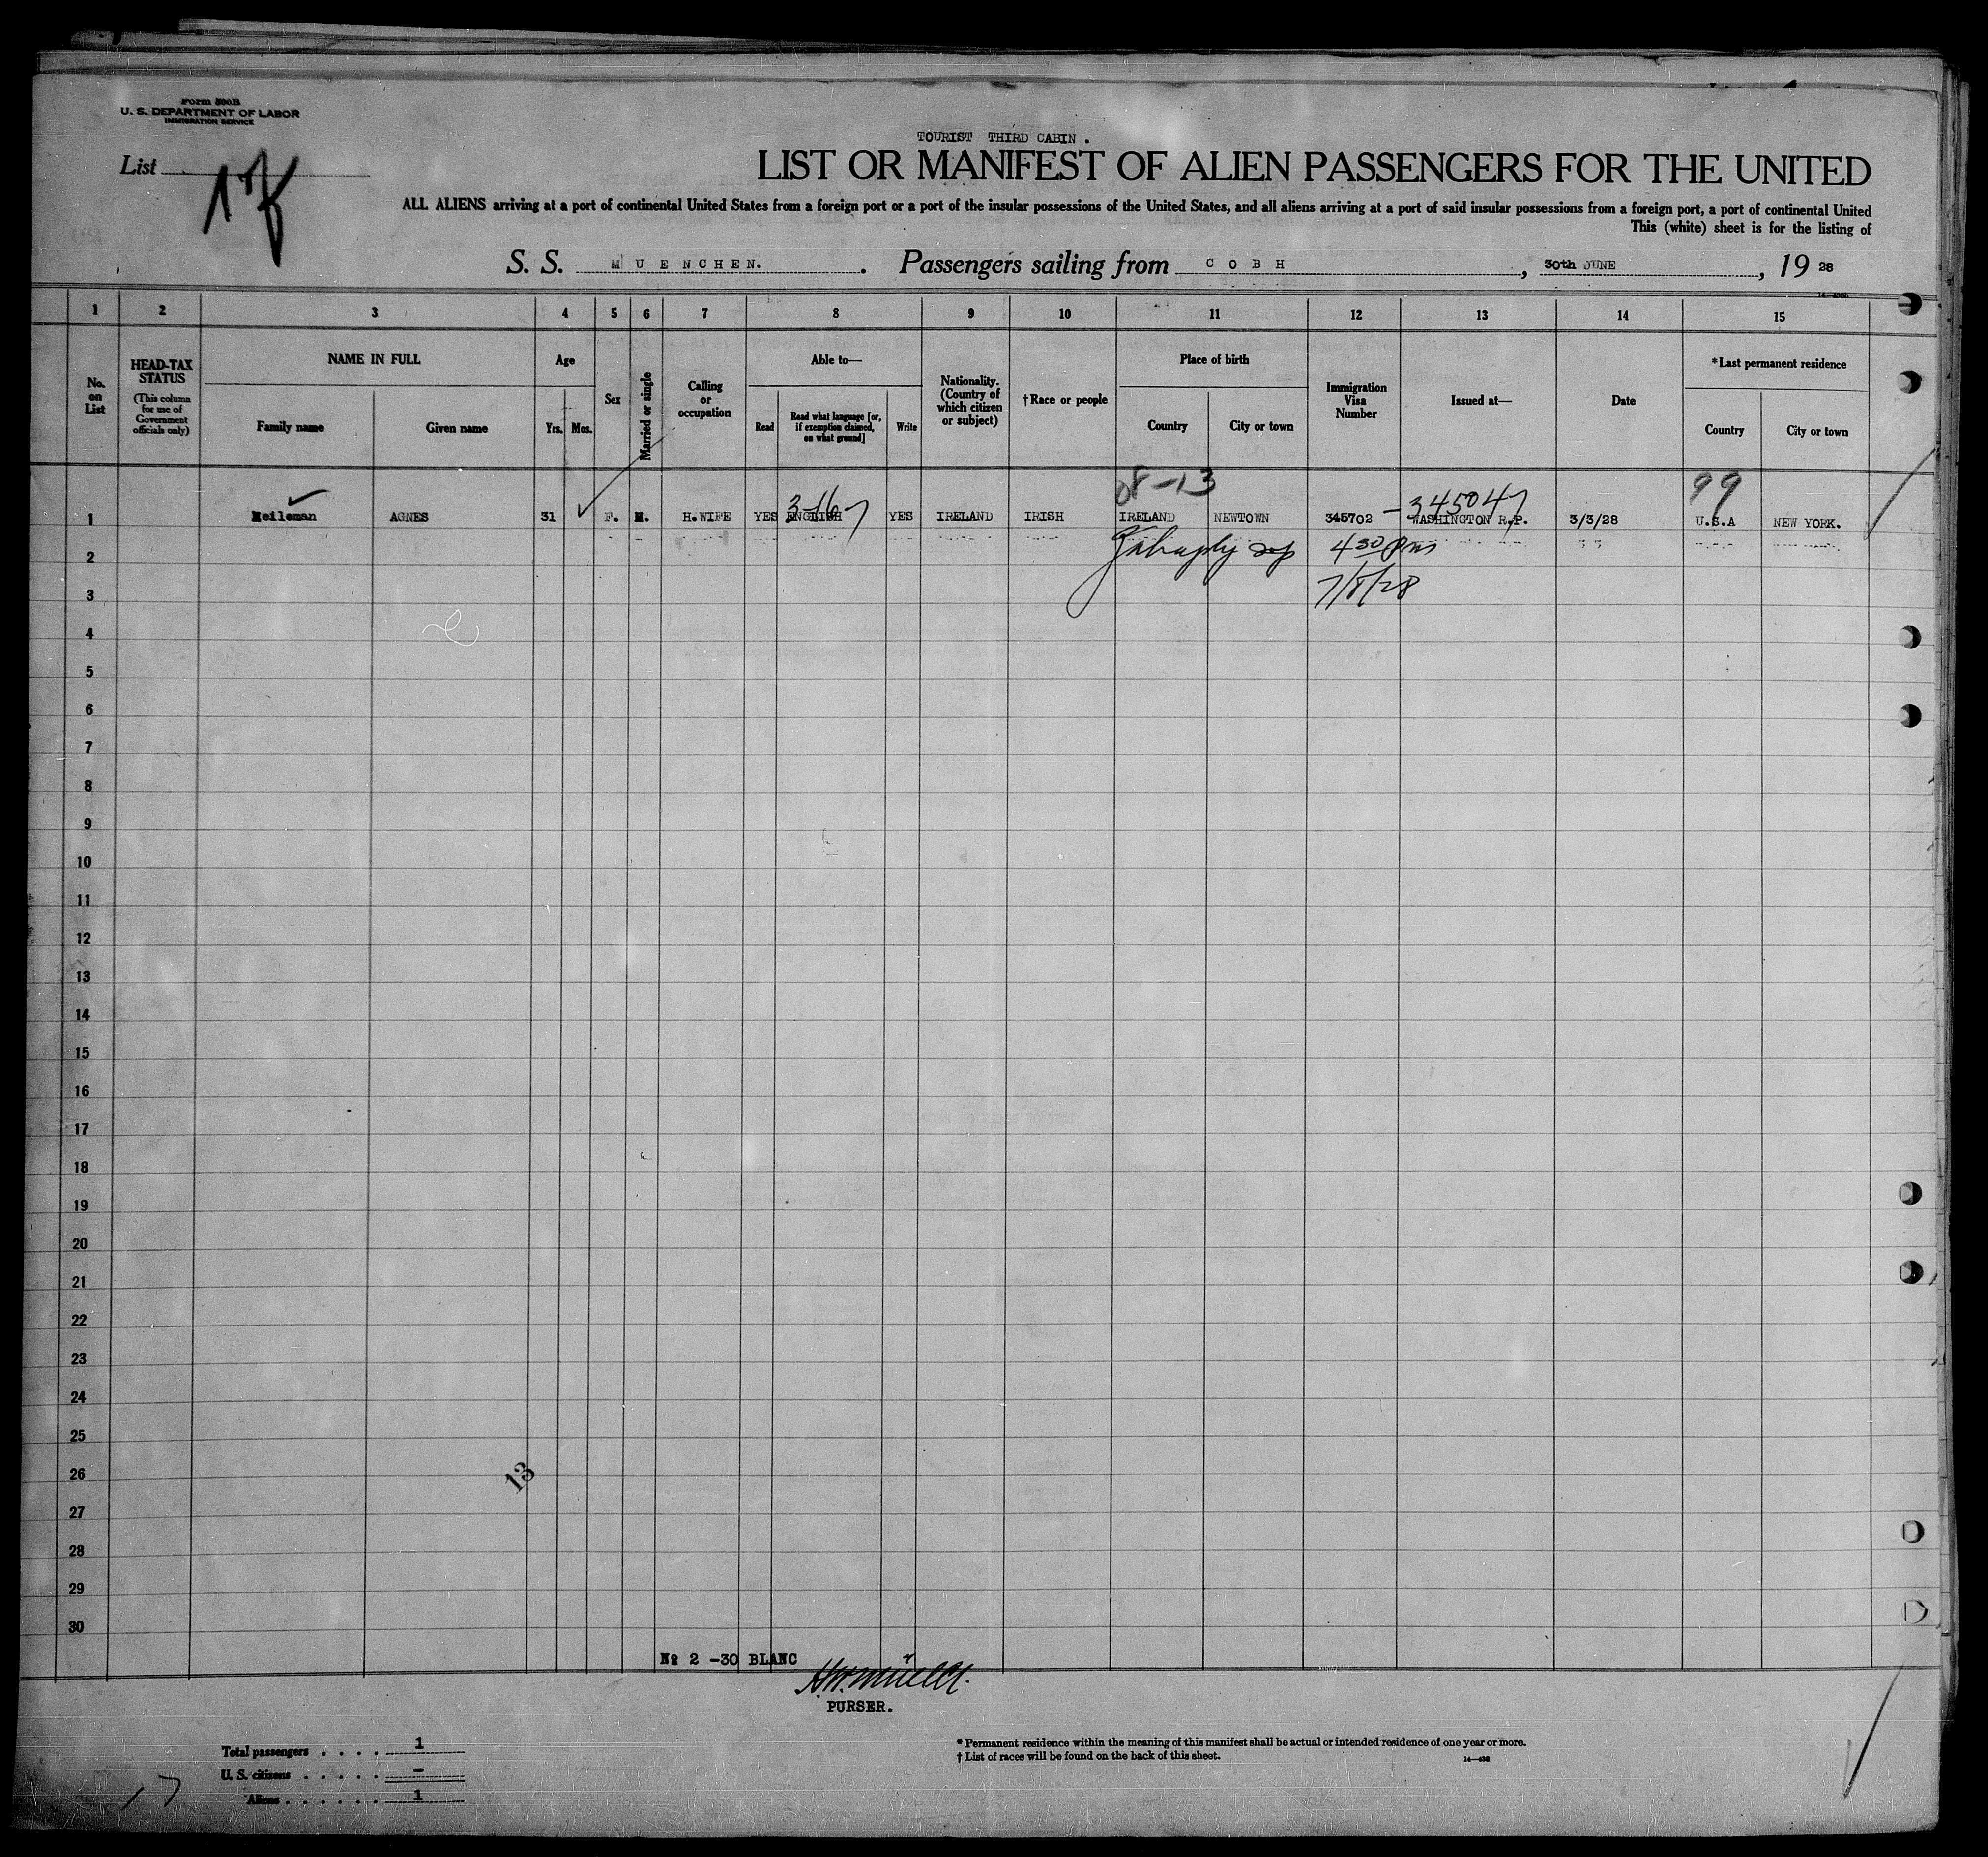 Form 500B
U. S. DEPARTMENT OF LABOR
IMMIGRATION SERVICE
TOURIST THIRD CABIN.
List
LIST OR MANIFEST OF ALIEN PASSENGERS FOR THE UNITED
ALL ALIENS arriving at a port of continental United States from a foreign port or a port of the insular possessions of the United States, and all aliens arriving at a port of said insular possessions from a foreign port, a port of continental United
This (white) sheet is for the listing of
S. S. MUENCHEN. Passengers sailing from COBH, 30th JUNE, 19 28
1 2 3 4 5 6 7 8 9 10 11 12 13 14 15
No. on List
HEAD-TAX STATUS
(This column for use of Government officials only)
NAME IN FULL
Family name
Given name
Age
Yrs.
Mos.
Sex
Married or single
Calling or occupation
Able to—
Read
Read what language [or, if exemption claimed, on what ground]
Write
Nationality. (Country of which citizen or subject)
†Race or people
Place of birth
Country
City or town
Immigration Visa Number
Issued at—
Date
*Last permanent residence
Country
City or town
08-13
345047
99
3-167
1 Heileman AGNES 31 F. M. H.WIFE YES ENGLISH YES IRELAND IRISH IRELAND NEWTOWN 345702 WASHINGTON R.P. 3/3/28 U.S.A NEW YORK.
2 430 Pm
3 7/8/28
4
5
6
7
8
9
10
11
12
13
14
15
16
17
18
19
20
21
22
23
24
25
26
13
27
28
29
30
№ 2 -30 BLANC
PURSER.
Total passengers . . . . 1
U. S. citizens . . . . . -
Aliens . . . . . . 1
* Permanent residence within the meaning of this manifest shall be actual or intended residence of one year or more.
† List of races will be found on the back of this sheet.
14—438
17